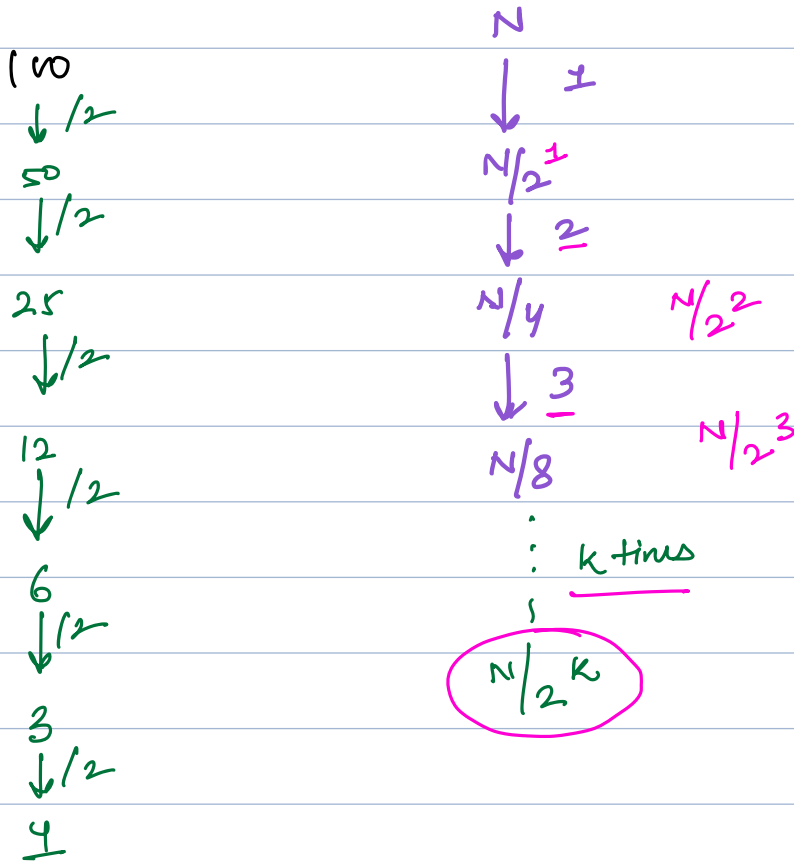 100
/2
50
/2
25
/2
12
/2
6
/2
3
/2
1
N
1
N/2^1
2
N/4 N/2^2
3
N/8 N/2^3
k times
N/2^k